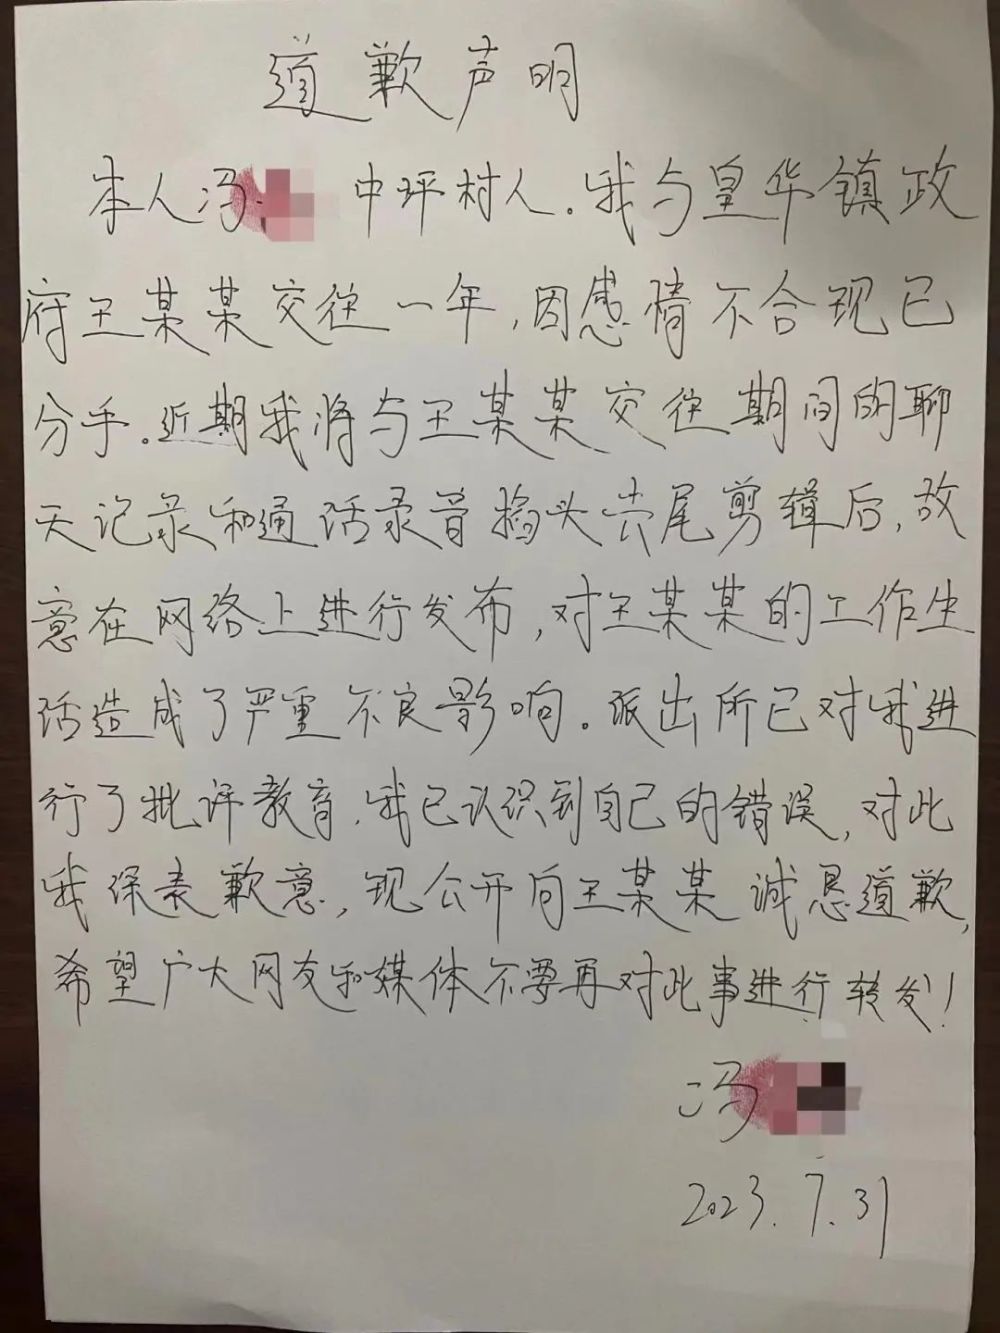 道歉声明
本人冯 中坪村人。我与皇华镇政
府王某某交往一年,因感情不合现已
分手。近期我将与王某某交往期间的聊
天记录和通话录音掐头去尾剪辑后,故
意在网络上进行发布,对王某某的工作生
活造成了严重不良影响。派出所已对我进
行了批评教育,我已认识到自己的错误,对此
我深表歉意,现公开向王某某诚恳道歉,
希望广大网友和媒体不要再对此事进行转发!
冯
2023.7.31